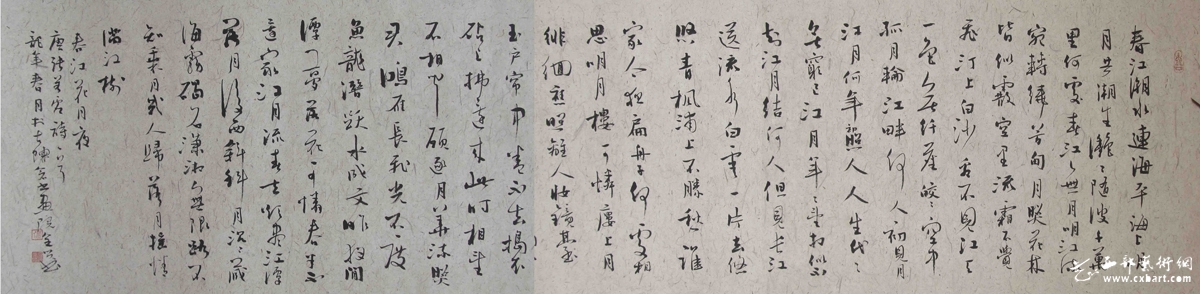 春江潮水連海平海上明
月共潮生灔灔隨波千萬
里何處春江江無月明江流
宛轉繞芳甸月照花林
皆似霰空里流霜不覺
飛汀上白沙看不見江天
一色無纤塵皎皎空中
孤月輪江畔何人初見月
江月何年照人人生代代
無窮江月年年望相似不
知江月待何人但見長江
送流水白雲一片去悠
悠青枫浦上不勝愁誰
家今夜扁舟子何處相
思明月樓可憐樓上月
徘徊應照離人妝鏡臺
玉戶帘中卷不去搗衣
砧上拂還來此时相望
不相聞願逐月華流照
君鴻雁長飛光不度
魚龍潜躍水成文昨夜閒
潭夢落花可憐春半不
還家江月流春去欲盡江潭
落月復西斜斜月沉沉藏
海霧碣石潇湘無限路不
知乘月幾人歸落月摇情
满江樹
春江花月夜
唐張若虚詩
西部藝術網
www.cxbart.com